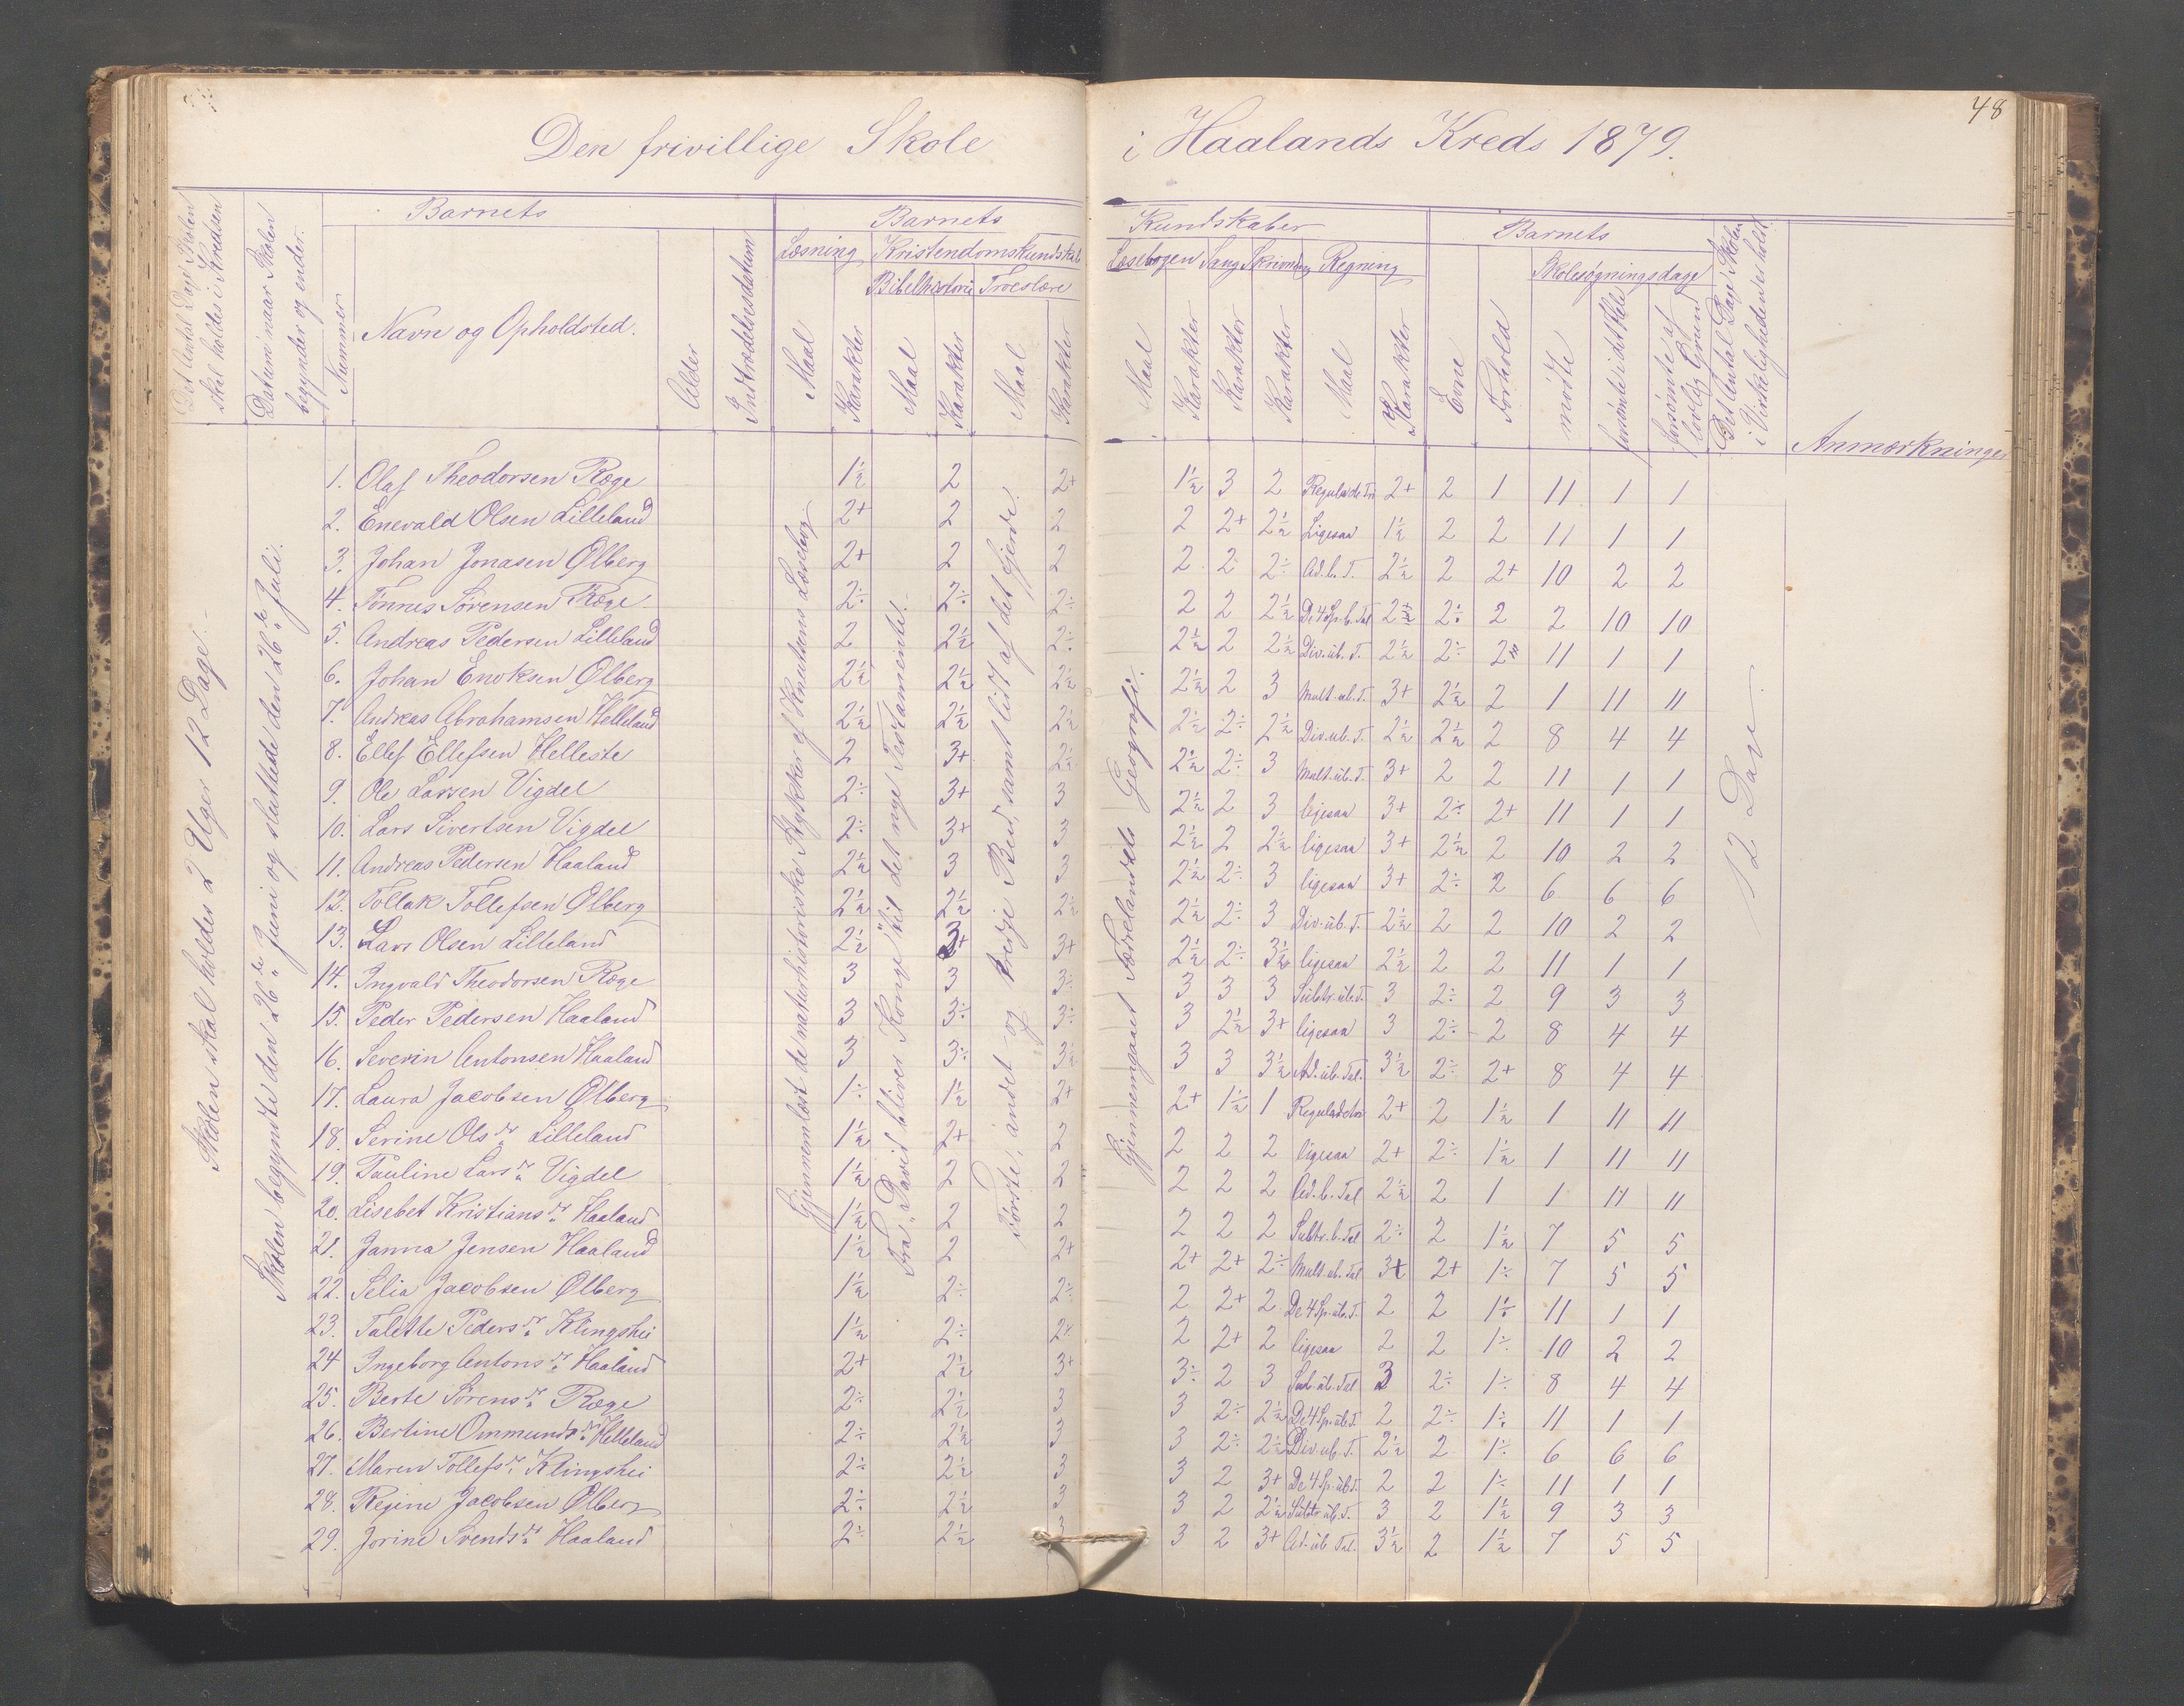 48
Den frivillige Skole i Haalands Kreds 1879.
Det Antal Dage Skolen skal holdes i Kredsen
Datum naar Skolen begynder og ender.
Nummer
Barnets
Navn og Opholdsted.
Alder
Indtrædelsesdatum
Barnets Kundskaber
Læsning
Maal
Karakter
Kristendomskundskab
Bibelhistorie
Maal
Karakter
Troeslære
Maal
Karakter
Læsebogen
Maal
Karakter
Sang
Karakter
Skrivning
Karakter
Regning
Maal
Karakter
Barnets
Evne
Forhold
Skolesøgningsdage
mødte
forsømte i det Hele
forsømte af lovlig Grund
Det Antal Dage Skolen i Virkeligheden er holdt.
Anmærkninger
Skolen skal holdes 2 Uger 12 Dage.
Skolen begyndte den 26de Juni og sluttede den 26de Juli.
Gjennemlæst de naturhistoriske Stykker af Knutsens Læsebog
Fra "David bliver Konge" til det nye Testamente.
Første, andet og tredje Bud, samt lidt af det fjerde.
Gjennemgaaet Fædrelandets Geografi.
12 Dage.
1. Olaf Theodorsen Ræge 1½ 2 2+ 1½ 3 2 Reguladetri 2+ 2 1 11 1 1
2. Enevald Olsen Lilleland 2+ 2 2 2 2+ 2½ Ligesaa 1½ 2 2 11 1 1
3. Johan Jonasen Ølberg 2+ 2 2 2 2 2÷ Ad. b. T. 2½ 2 2+ 10 2 2
4. Tønnes Sørensen Ræge 2÷ 2÷ 2÷ 2 2 2½ De 4 Sp. b. Tal 2½ 2÷ 2 2 10 10
5. Andreas Pedersen Lilleland 2 2½ 2÷ 2½ 2 2½ Div. ub. T. 2½ 2÷ 2 11 1 1
6. Johan Enoksen Ølberg 2½ 2½ 2½ 2½ 2 3 Mult. ub. T. 3+ 2½ 2 1 11 11
7. Andreas Abrahamsen Helleland 2½ 2½ 2½ 2½ 2÷ 2½ Div. ub. T. 2½ 2½ 2 8 4 4
8. Ellef Ellefsen Helleste 2 3+ 2½ 2½ 2÷ 3 Mult. ub. T. 3+ 2 2 11 1 1
9. Ole Larsen Vigdel 2÷ 3+ 3 2½ 2 3 ligesaa 3+ 2÷ 2+ 11 1 1
10. Lars Sivertsen Vigdel 2÷ 3+ 3 2½ 2 2½ ligesaa 3+ 2½ 2 10 2 2
11. Andreas Pedersen Haaland 2½ 3 3 2½ 2÷ 3 ligesaa 3+ 2÷ 2 6 6 6
12. Tollak Tollefsen Ølberg 2½ 2½ 2½ 2½ 2÷ 3 Div. ub. T. 2½ 2 2 10 2 2
13. Lars Olsen Lilleland 2½ 3+ 3+ 2½ 2÷ 3½ ligesaa 2½ 2 2 11 1 1
14. Ingvald Theodorsen Ræge 3 3 3÷ 3 3 3 Subtr. ub. T. 3 2÷ 2 9 3 3
15. Peder Pedersen Haaland 3 3÷ 3÷ 3 2½ 3+ ligesaa 3 2÷ 2 8 4 4
16. Severin Antonsen Haaland 3 3÷ 3½ 3 3 3½ Ad. ub. Tal. 3½ 2÷ 2+ 8 4 4
17. Laura Jacobsen Ølberg 1÷ 1½ 2+ 2+ 1½ 1 Reguladetri 2+ 2 1½ 1 11 11
18. Serine Olsdr Lilleland 1½ 2+ 2 2 2 2 ligesaa 2+ 2÷ 1½ 1 11 11
19. Pauline Larsdr Vigdel 1½ 2 2 2 2 2 Ad. b. Tal 2½ 2 1 1 11 11
20. Lisebet Kristiansdr Haaland 1½ 2 2 2 2 2 Subtr. b. Tal 2÷ 2 1½ 7 5 5
21. Janna Jensen Haaland 1½ 2 2+ 2+ 2+ 2÷ Mult. ub. Tal 3+ 2+ 1÷ 7 5 5
22. Selia Jacobsen Ølberg 1½ 2÷ 2÷ 2 2+ 2 De 4 Sp. ub. T. 2 2 1÷ 11 1 1
23. Talette Pedersdr Klingshei 1½ 2÷ 2÷ 2 2+ 2 ligesaa 2 2 1÷ 10 2 2
24 Ingeborg Antonsdr Haaland 2+ 2½ 3+ 3÷ 2 3 Sub. ub. Tal 3 2÷ 1÷ 8 4 4
25. Berte Sørensdr Ræge 2÷ 2½ 3 3 2÷ 2½ De 4 Sp. ub. T 2 2÷ 1÷ 11 1 1
26. Bertine Ommundsdr Helleland 2÷ 2½ 3 3 2÷ 2½ Div. ub. T. 2½ 2 1÷ 6 6 6
27. Maren Tollefsdr Klingshei 2÷ 2½ 3 3 2 3+ De 4 Sp. ub T. 2 2 1÷ 11 1 1
28. Regine Jacobsen Ølberg 2÷ 2½ 3 3 2 2½ Subtr. ub. T. 3 2 1½ 9 3 3
29. Jorine Svendsdr Haaland 2÷ 2½ 3 3 2 3+ Ad. ub Tal. 3½ 2 1½ 7 5 5